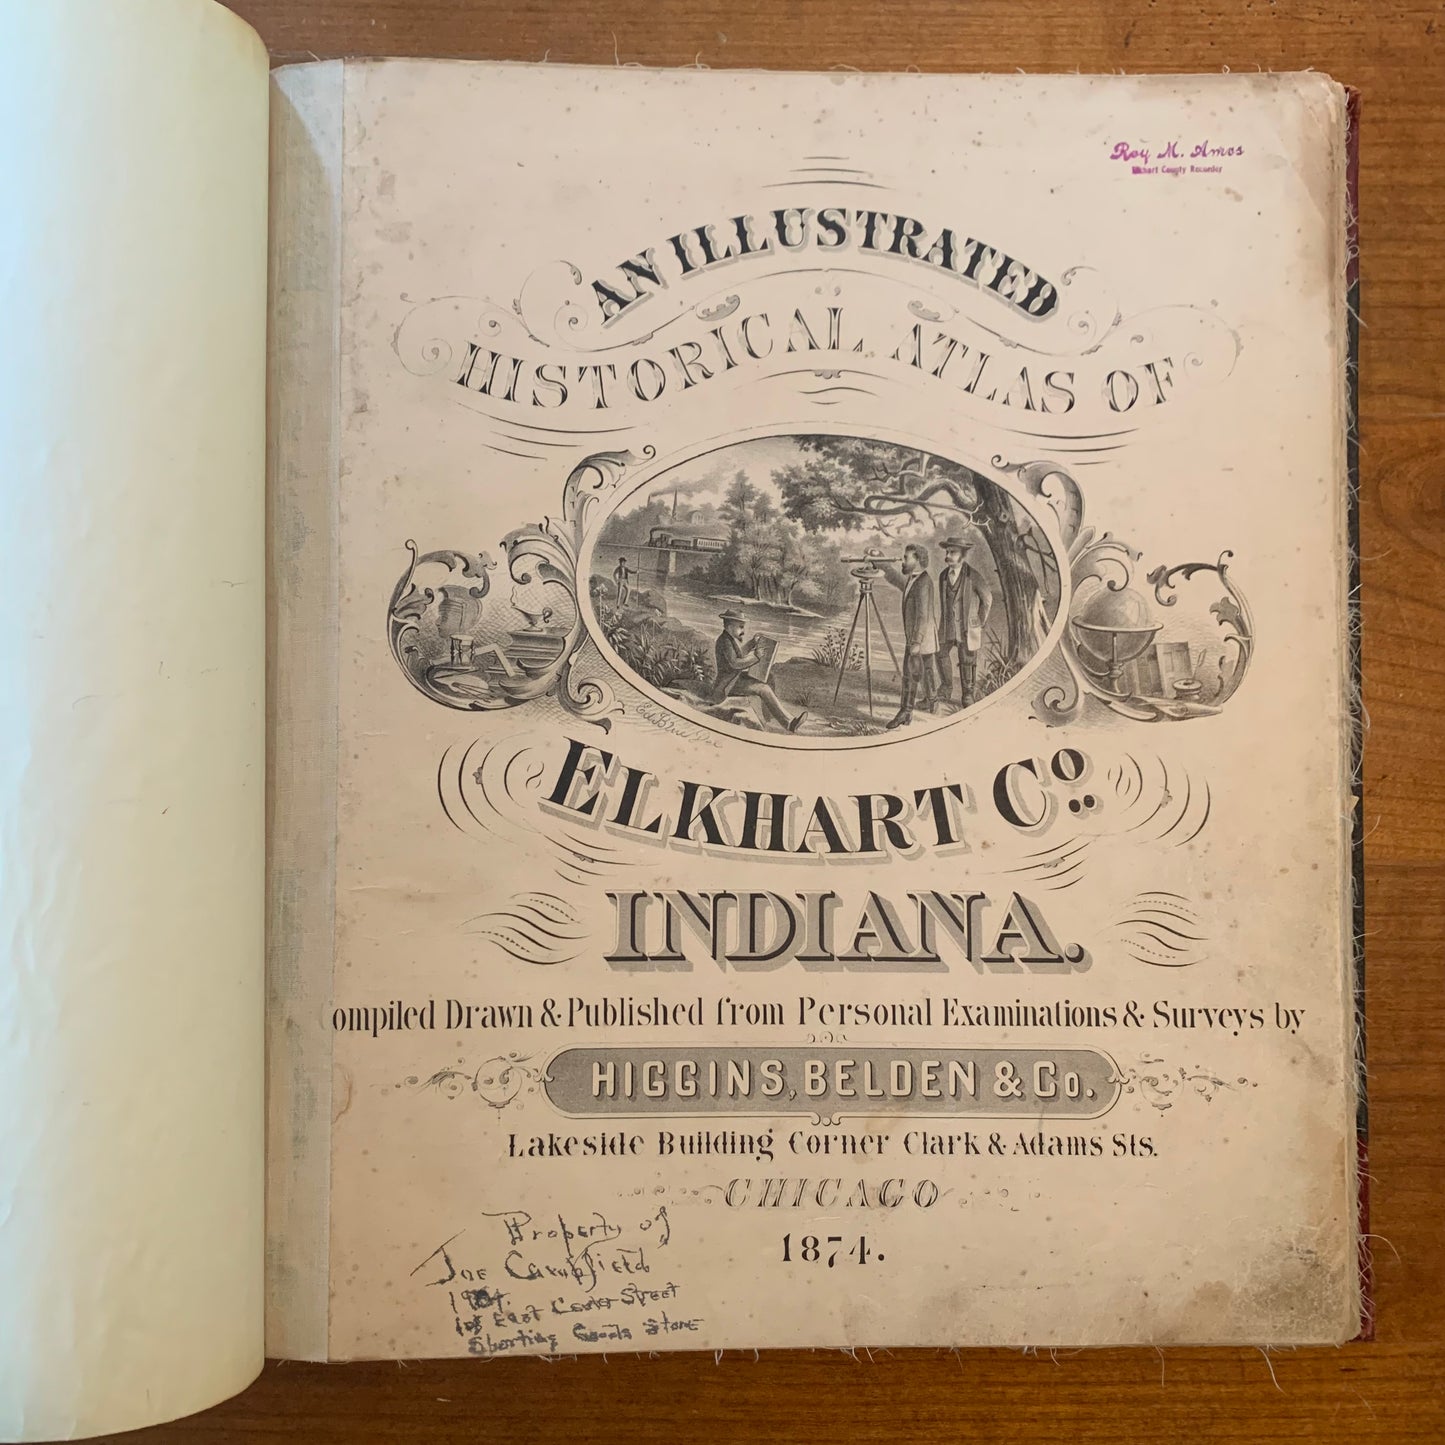 Roy M. Amos
Elkhart County Recorder
AN ILLUSTRATED
HISTORICAL ATLAS OF
ELKHART Co.
INDIANA.
ompiled Drawn & Published from Personal Examinations & Surveys by
HIGGINS, BELDEN & Co.
Lakeside Building Corner Clark & Adams Sts.
CHICAGO
1874.
Property of
Joe Campfield
East Center Street
Sporting Goods Store